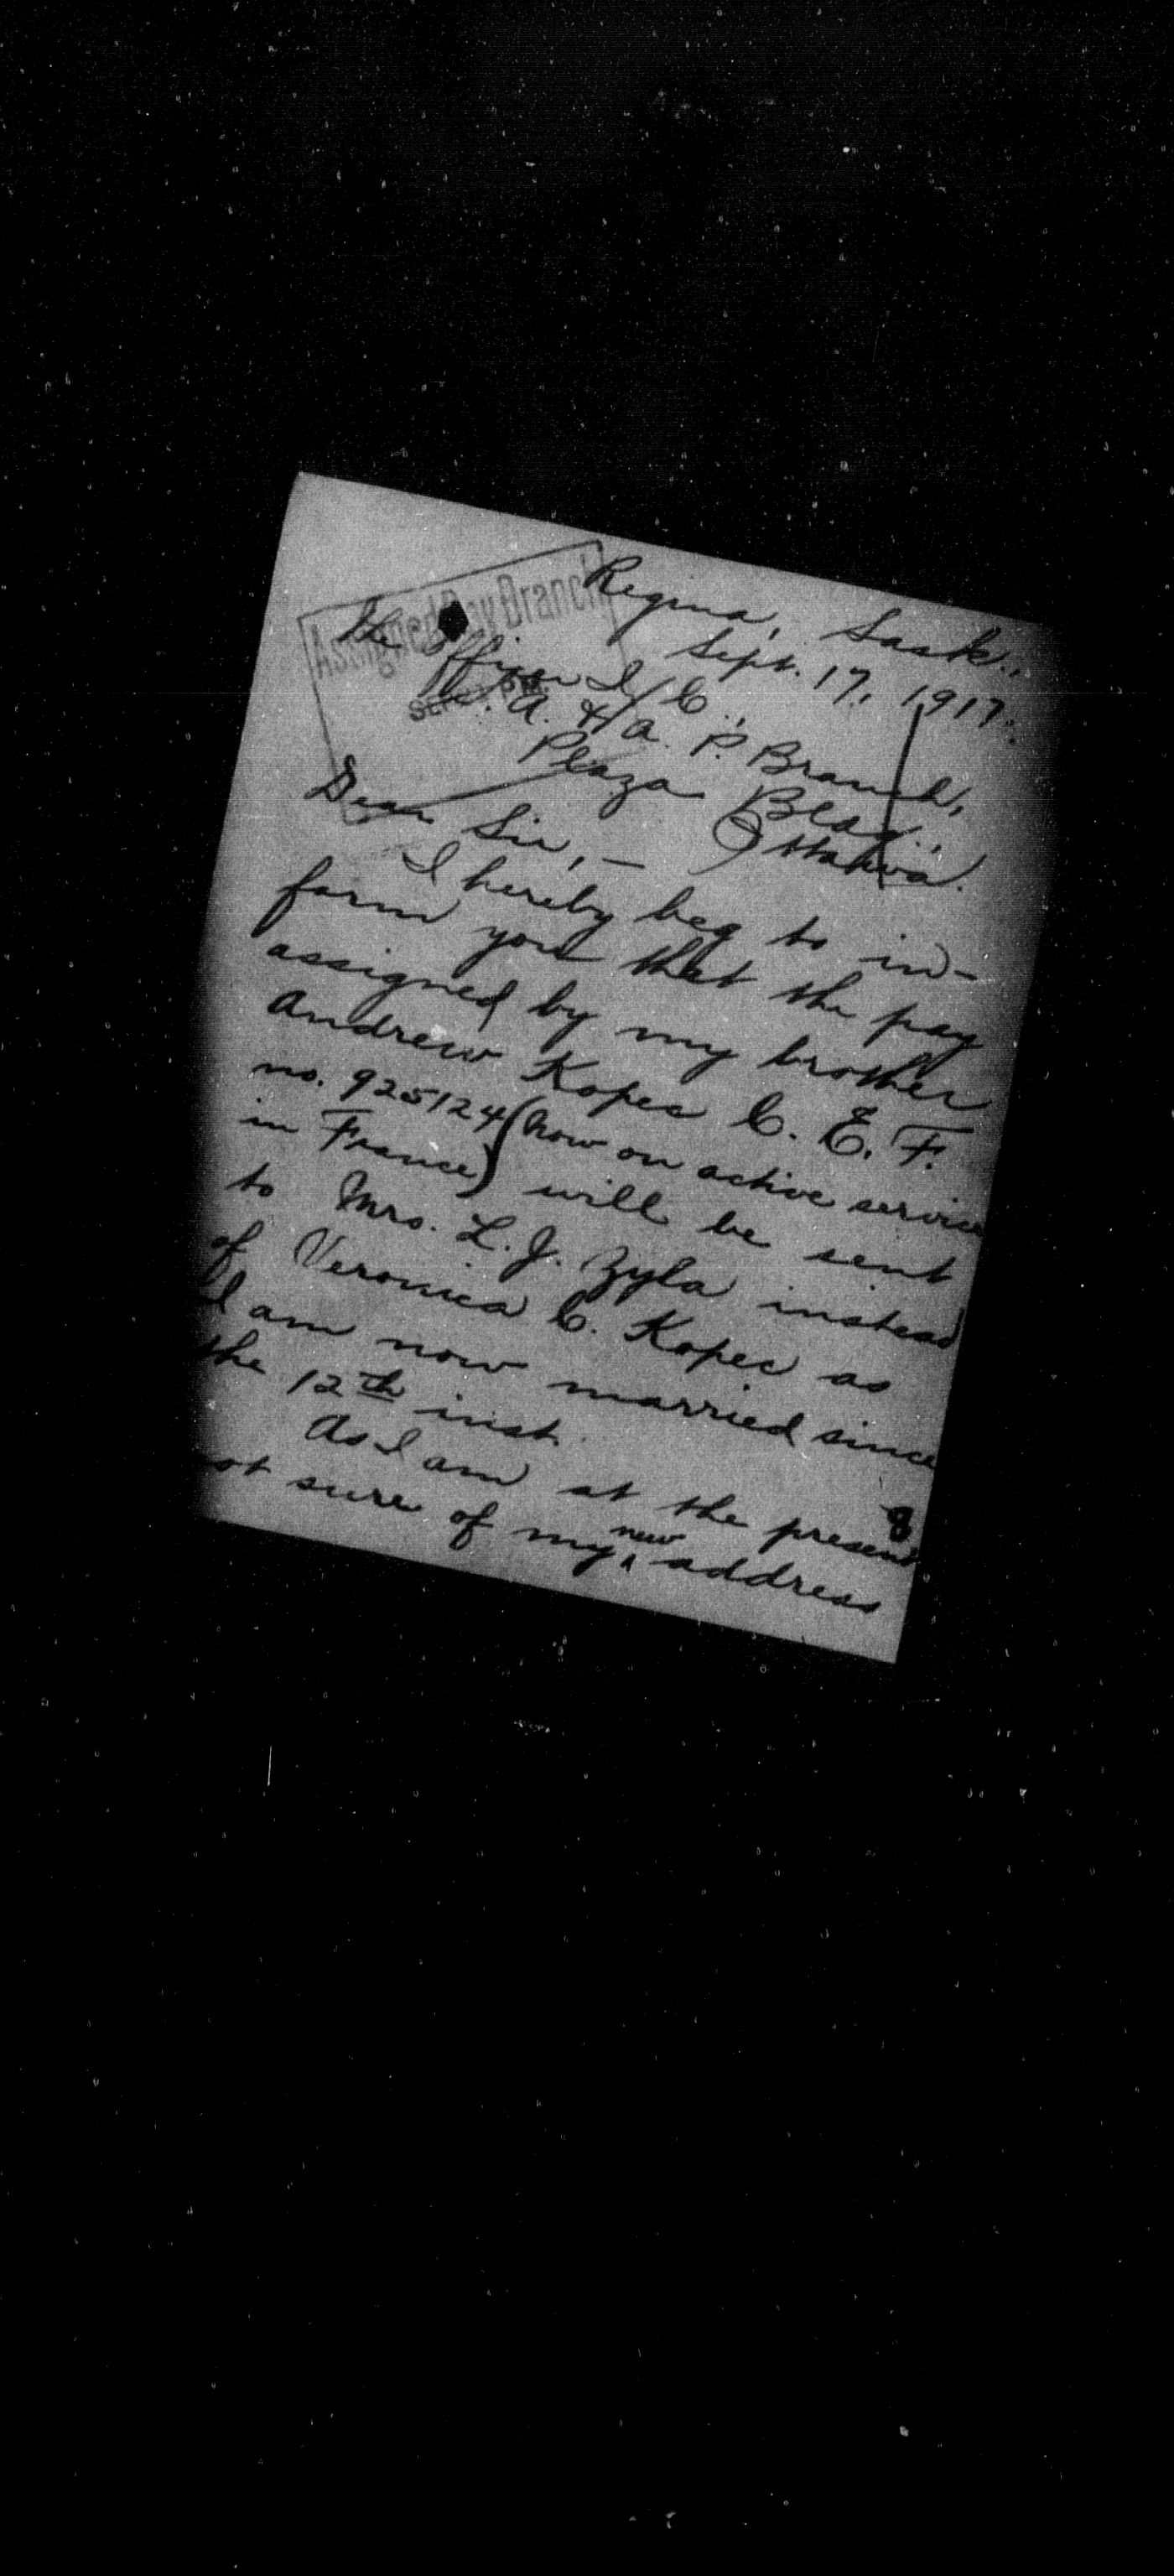 Assigned Pay Branch
Regina, Sask.,
Sept. 17, 1917.
The Officer I/C.,
S. A. & A. P. Branch,
Plaza Bldg.,
Ottawa.
Dear Sir, —
I hereby beg to in-
form you that the pay
assigned by my brother
Andrew Kopec C. E. F.
no. 925124 (now on active service
in France) will be sent
to Mrs. L. J. Zyla instead
of Veronica C. Kopec as
I am now married since
the 12th inst.
As I am at the present
not sure of my new address
8